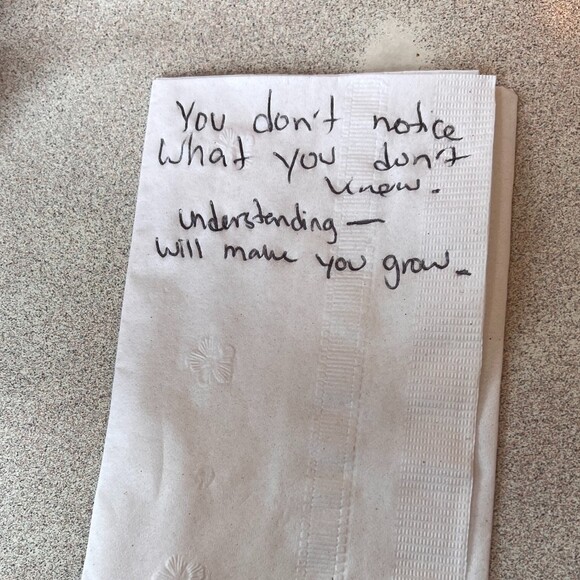 You don't notice
what you don't
know.
understanding —
will make you grow_